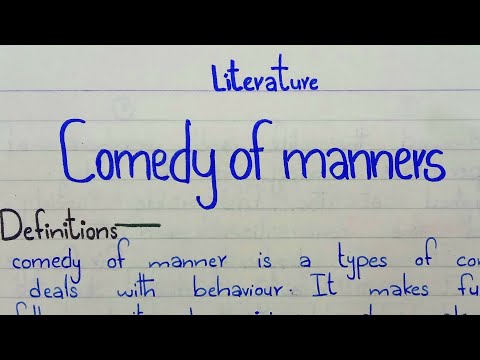 Literature
Comedy of manners
Definitions—
comedy of manner is a types of
deals with behaviour. It makes